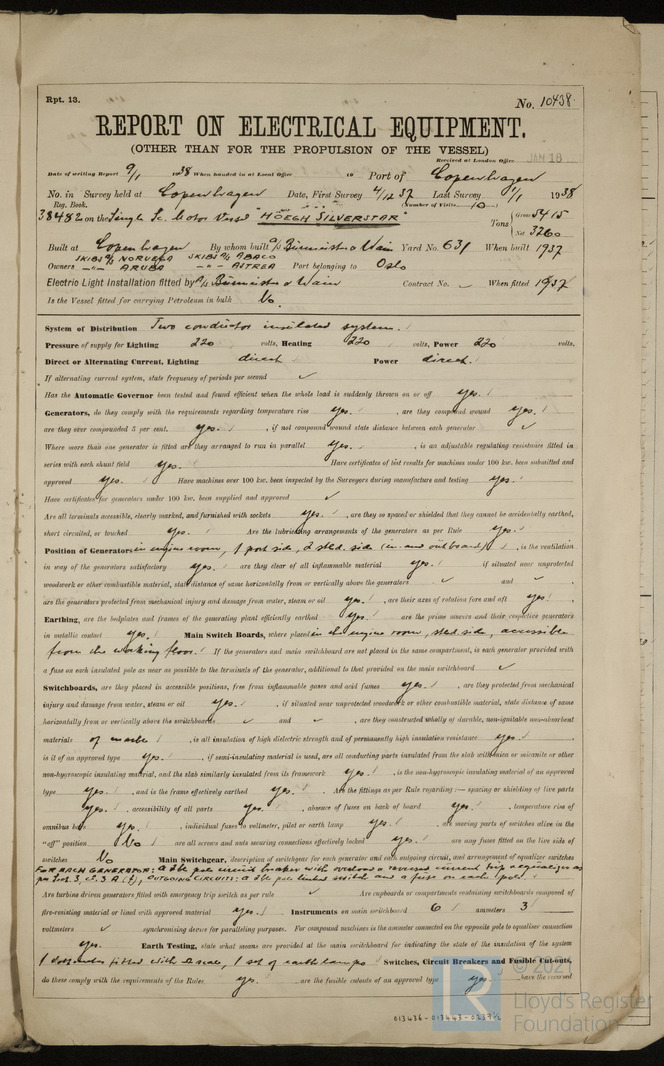 Rpt. 13.
No. 10438
REPORT ON ELECTRICAL EQUIPMENT.
(OTHER THAN FOR THE PROPULSION OF THE VESSEL)
Received at London Office JAN 18
Date of writing Report 9/1 1938 When handed in at Local Office 19 Port of Copenhagen
No. in Survey held at Copenhagen Date, First Survey 4/12 37 Last Survey 1/1 1938
Reg. Book. (Number of Visits 10)
38482 on the Single Sc. Motor Vessel "HÖEGH SILVERSTAR" Tons { Gross 5415
Net 3260
Built at Copenhagen By whom built A/S Burmeister & Wain Yard No. 631 When built 1937
SKIBS A/S NORUEGA SKIBS A/S ABACO
Owners -"- ARUBA -"- ASTREA Port belonging to Oslo
Electric Light Installation fitted by A/S Burmeister & Wain Contract No. When fitted 1937
Is the Vessel fitted for carrying Petroleum in bulk No.
System of Distribution Two conductor insulated system.
Pressure of supply for Lighting 220 volts, Heating 220 volts, Power 220 volts.
Direct or Alternating Current, Lighting direct Power direct.
If alternating current system, state frequency of periods per second ✓
Has the Automatic Governor been tested and found efficient when the whole load is suddenly thrown on or off yes.
Generators, do they comply with the requirements regarding temperature rise yes. , are they compound wound yes.
are they over compounded 5 per cent. yes. , if not compound wound state distance between each generator ✓
Where more than one generator is fitted are they arranged to run in parallel yes. , is an adjustable regulating resistance fitted in
series with each shunt field yes. Have certificates of test results for machines under 100 kw. been submitted and
approved yes. Have machines over 100 kw. been inspected by the Surveyors during manufacture and testing yes.
Have certificates for generators under 100 kw. been supplied and approved ✓
Are all terminals accessible, clearly marked, and furnished with sockets yes. , are they so spaced or shielded that they cannot be accidentally earthed,
short circuited, or touched yes. Are the lubricating arrangements of the generators as per Rule yes.
Position of Generators in engine room, 1 port side, 2 stbd. side (in- and outboard) , is the ventilation
in way of the generators satisfactory yes. are they clear of all inflammable material yes. if situated near unprotected
woodwork or other combustible material, state distance of same horizontally from or vertically above the generators ✓ and ✓ ,
are the generators protected from mechanical injury and damage from water, steam or oil yes. , are their axes of rotation fore and aft yes.
Earthing, are the bedplates and frames of the generating plant efficiently earthed yes. are the prime movers and their respective generators
in metallic contact yes. Main Switch Boards, where placed in the engine room, stbd. side, accessible
from the working floor. If the generators and main switchboard are not placed in the same compartment, is each generator provided with
a fuse on each insulated pole as near as possible to the terminals of the generator, additional to that provided on the main switchboard ✓
Switchboards, are they placed in accessible positions, free from inflammable gases and acid fumes yes. , are they protected from mechanical
injury and damage from water, steam or oil yes. , if situated near unprotected woodwork or other combustible material, state distance of same
horizontally from or vertically above the switchboards ✓ and ✓ , are they constructed wholly of durable, non-ignitable non-absorbent
materials of marble , is all insulation of high dielectric strength and of permanently high insulation resistance yes.
is it of an approved type yes. , if semi-insulating material is used, are all conducting parts insulated from the slab with mica or micanite or other
non-hygroscopic insulating material, and the slab similarly insulated from its framework yes. , is the non-hygroscopic insulating material of an approved
type yes. , and is the frame effectively earthed yes. Are the fittings as per Rule regarding:— spacing or shielding of live parts
yes. , accessibility of all parts yes. , absence of fuses on back of board yes. , temperature rise of
omnibus bars yes. , individual fuses to voltmeter, pilot or earth lamp yes. , are moving parts of switches alive in the
"off" position No are all screws and nuts securing connections effectively locked yes. are any fuses fitted on the live side of
switches No Main Switchgear, description of switchgear for each generator and each outgoing circuit, and arrangement of equalizer switches
FOR EACH GENERATOR: a dble pole circuit breaker with overload & reversed current trip & equalizer as
OUTGOING CIRCUITS: a dble pole switch and a fuse on each pole.
Are turbine driven generators fitted with emergency trip switch as per rule ✓ Are cupboards or compartments containing switchboards composed of
fire-resisting material or lined with approved material yes. Instruments on main switchboard 6 ammeters 3
voltmeters ✓ synchronising device for paralleling purposes. For compound machines is the ammeter connected on the opposite pole to equaliser connection
yes. Earth Testing, state what means are provided at the main switchboard for indicating the state of the insulation of the system
1 voltmeter fitted with scale, 1 set of earth lamps Switches, Circuit Breakers and Fusible Cut-outs,
do these comply with the requirements of the Rules yes. , are the fusible cutouts of an approved type yes. , have the reversed
© 2021
LR
Lloyd's Register
Foundation
013436-013443-0237½